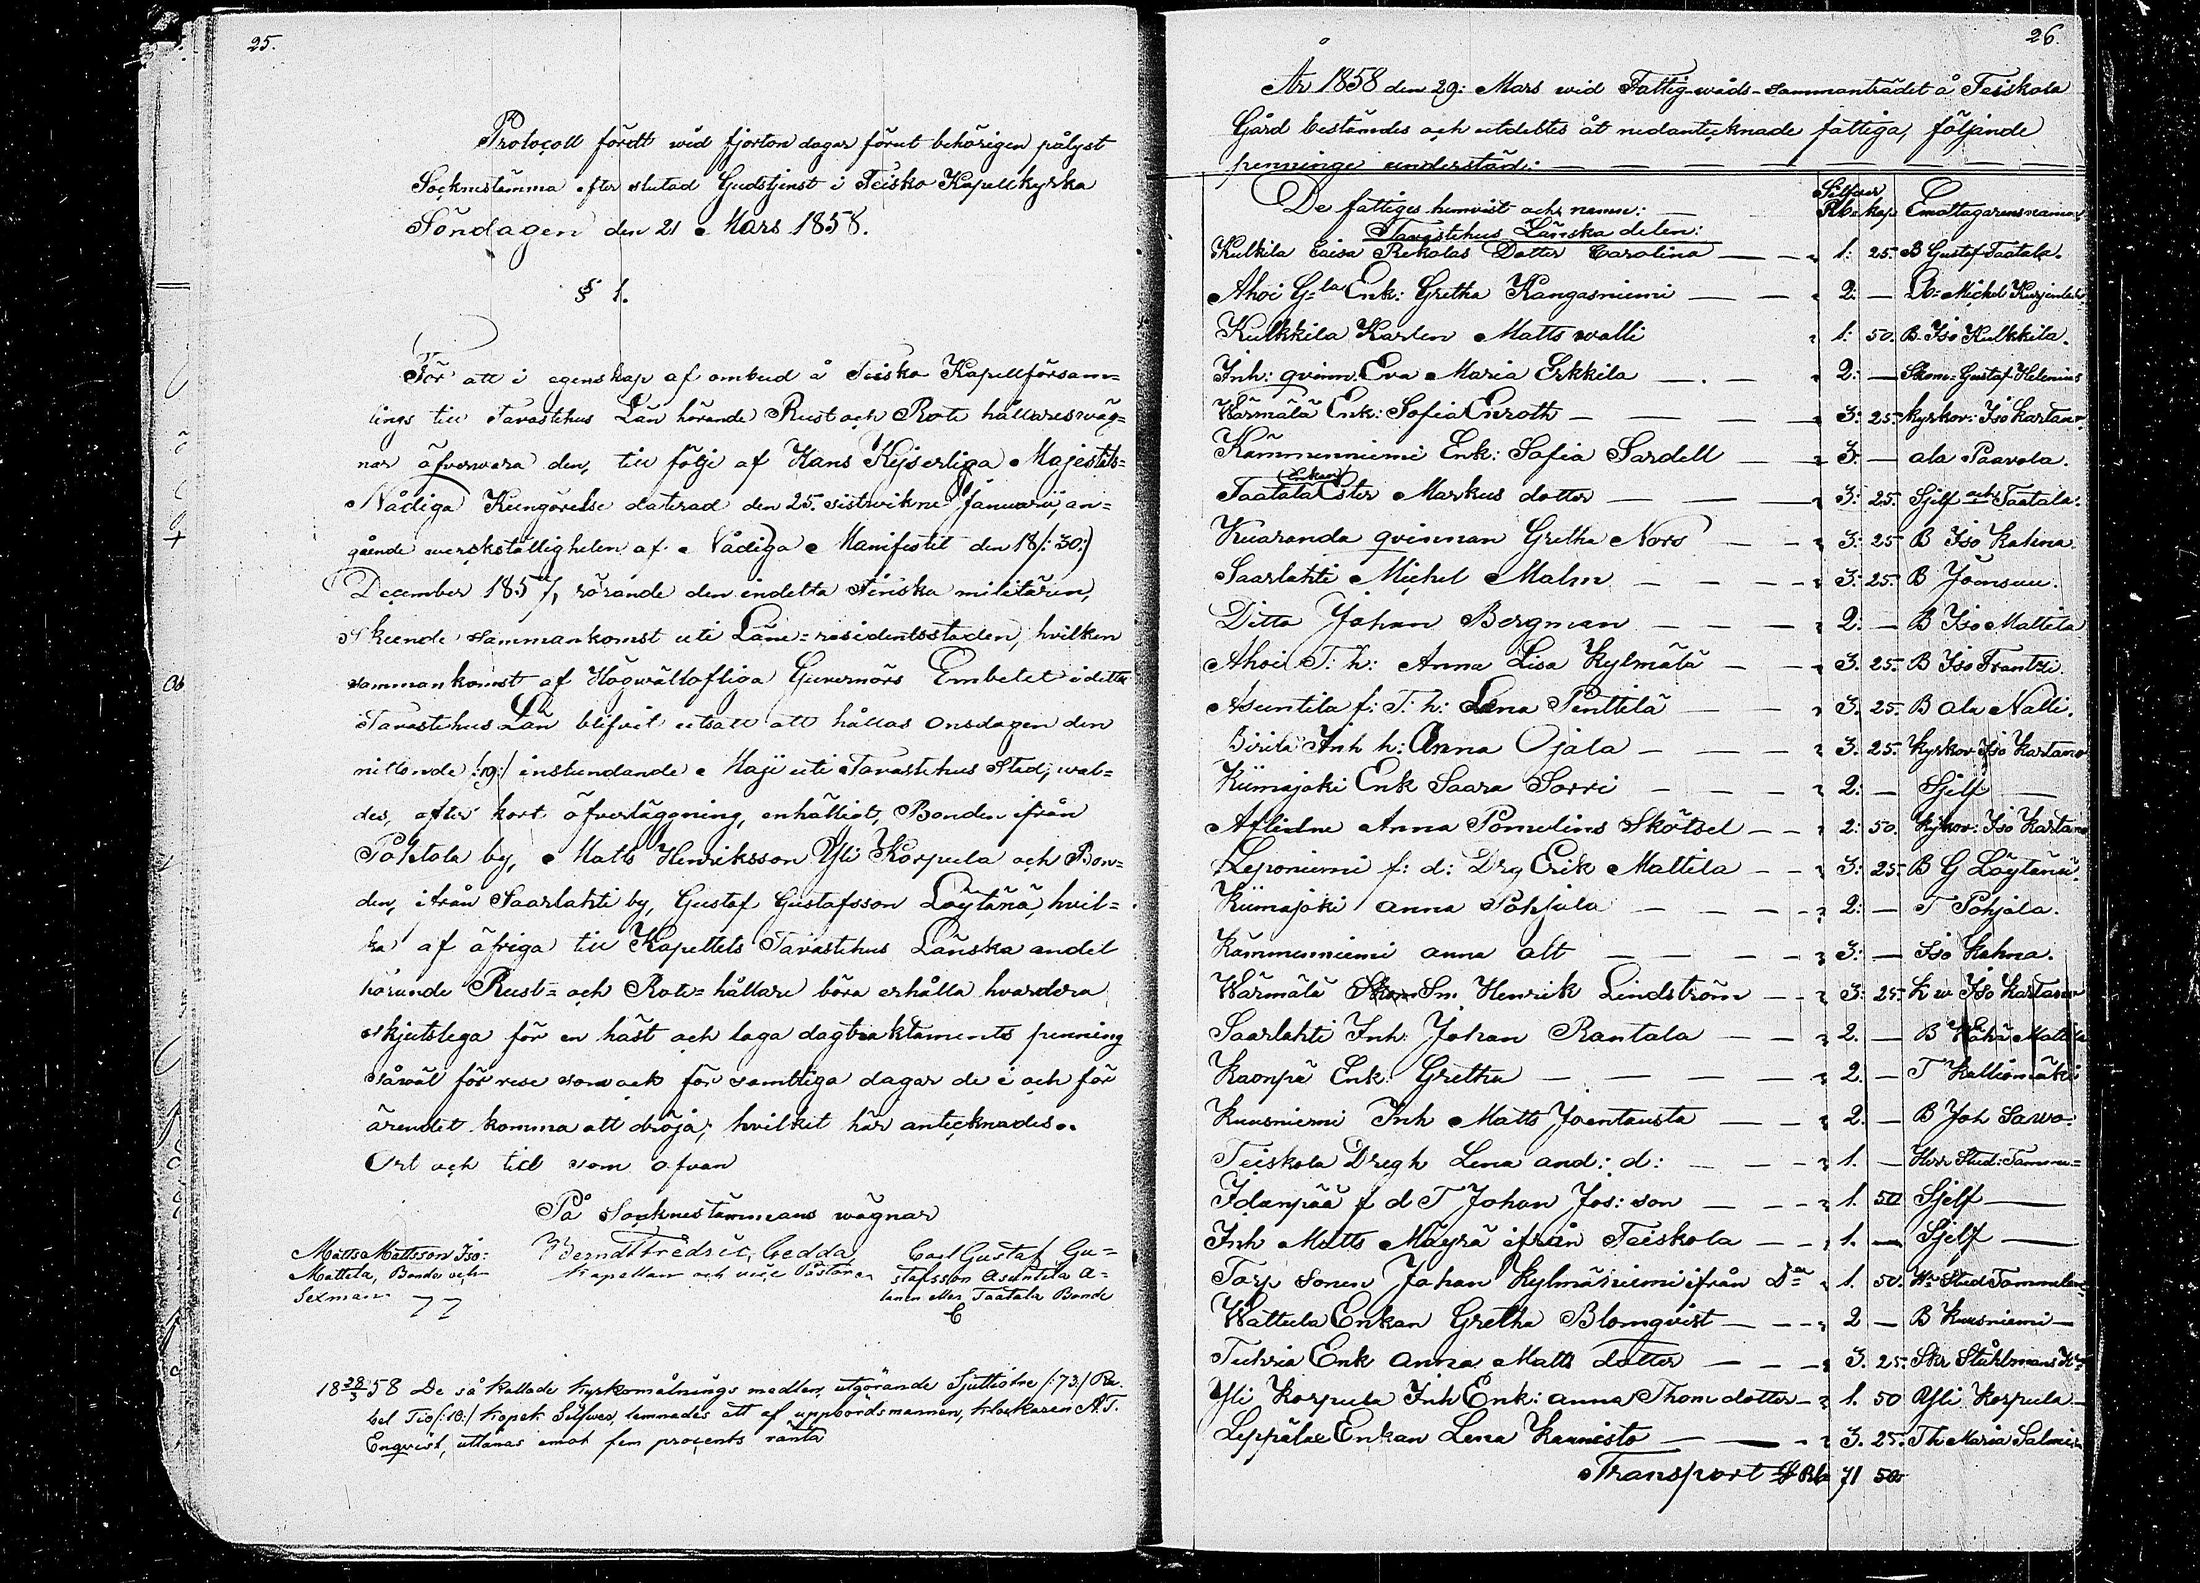 25.
Protocoll fördt wid fjorton dagar förut behörigen pålyst
Socknestämma efter slutad Gudstjenst i Teisko Kapellkyrka
Söndagen den 21 Mars 1858.
§ 1.
För att i egenskap af ombud å Teisko Kapellförsam=
lings till Tavastehus Län hörande Rust och Rote hållares wäg=
nar öfvervara den, till följe af Hans Kejserliga Majestäts=
Nådiga Kungörelse daterad den 25. sistvikne Januarii, an=
gående werkställigheten af Nådiga Manifestet den 18/:30:)
December 1857, rörande den indelta Finska militären,
skeende sammankomst uti Läne=residentsstaden, hvilken
sammankomst af Högwällofliga Guvernörs Embetet i detta
Tavastehus Län blifvit utsatt att hållas Onsdagen den
nittonde /:19:/ instundande Maji uti Tavastehus Stad, wal=
des, efter kort öfverläggning, enhälligt, Bonden ifrån
Pohtola by, Matts Henriksson Yli Korpula och Bon=
den, ifrån Saarlahti by, Gustaf Gustafsson Löytänä, hvil=
ka af öfriga till Kapellets Tavastehus Länska andel
hörande Rust= och Rote=hållare böra erhålla hvardera
skjutslega för en häst och laga dagtraktaments penning
såwäl för resa som ock för samtliga dagar de i och för
ärendet komma att dröja; hvilket här antecknades.
Ort och tid som ofvan
På Socknestämmans wägnar
Matts Mattsson Iso: Berndt Fredric Gedda Carl Gustaf Gu=
Mattila, Bonde och Kapellan och vice Pastor stafsson Asuntila a=
Sexman lenn eller Taatala Bonde
18 28/3 58 De så kallade kyrkomålnings medlen, utgörande Sjuttiotre /:73:/ Ru=
bel Tio /:10:/ kopek Silfwer, lemnades att af uppbordsmannen, klockaren A.T.
Enqvist, utlånas emot fem procents ränta
26.
År 1858 den 29: Mars wid Fattig-wåds-Sammanträdet å Teiskola
Gård bestämdes och utdeltes åt nedantecknade fattiga, följande
penninge understöd:
De fattiges hemvist och namn: Silfwer Rb. kop. Emottagarens namn
Tavastehus Länska delen:
Kulkkila Caisa Rekolas Dotter Carolina 1: 25. B Gustaf Taatala.
Ahoi G:la Enk: Gretha Kangasniemi 2: —
Kulkkila Karlen Matts walli 1: 50. B. Iso Kulkkila.
Inh: qvinn. Eva Maria Erkkila 2: — Gustaf Helenius
Wärmälä Enk: Sofia Enroth 3: 25. kyrkov: Iso Kartano
Kämmenniemi Enk: Sofia Sardell 3: — ala Paavola.
Taatala (Enkan) Ester Markus dotter 3: 25. Sjelf och Taatala.
Kuaranda qvinnan Gretha Nors 3: 25 B Iso Kahna.
Saarlahti Michel Malm 3: 25. B Joinsuu.
Ditto Johan Bergman 2: — B Iso Mattila
Ahoi T: h: Anna Lisa Kylmälä 3. 25. B Iso Frantsi.
Asuntila f: T: h: Lena Penttilä 3. 25. B Ala Nalli.
Inh h: Anna Ojala 3. 25. Kyrkov Iso Kartano
Kiimajoki Enk Saara Sorri 2: — Sjelf
Aflidne Anna Pomelins Skötsel 2: 50. Kyrkov: Iso Kartano
Leponiemi f: d: Drg Erik Mattila 3: 25. B G Löytänä.
Kiimajoki Anna Pohjala 2: — T Pohjala.
Kämmenniemi anna alt 3: — Iso Kahna.
Wärmälä Sm. Henrik Lindström 3: 25. K w Iso Kartano
Saarlahti Inh Johan Rantala 2. — B Wähä Mattila
Kaonpä Enk. Gretha 2. — T Kalliomäki
Kuusniemi Inh Matts Joentausta 2. — B Joh Sawo
Teiskola Dregh Lena and: d: 1. — Herr Stud: Tamme=
Idänpää f d T Johan Jos: son 1. 50 Sjelf
Inh Matts Mäyrä ifrån Teiskola 1. — Sjelf
Torp Sonen Johan Kylmäniemi ifrån D:o 1. 50. Hr Stud Tammelan
Wattula Enkan Gretha Blomqvist 2 — B Kuusniemi
Tuhria Enk Anna Matts dotter 3. 25. Skr Ståhlmans
Yli Korpula Inh Enk: Anna Thom dotter 1. 50 Yli Korpula
Leppälae Enkan Lena Kaunisto 3. 25. Th Maria Salmin
Transport S Rb 71 50